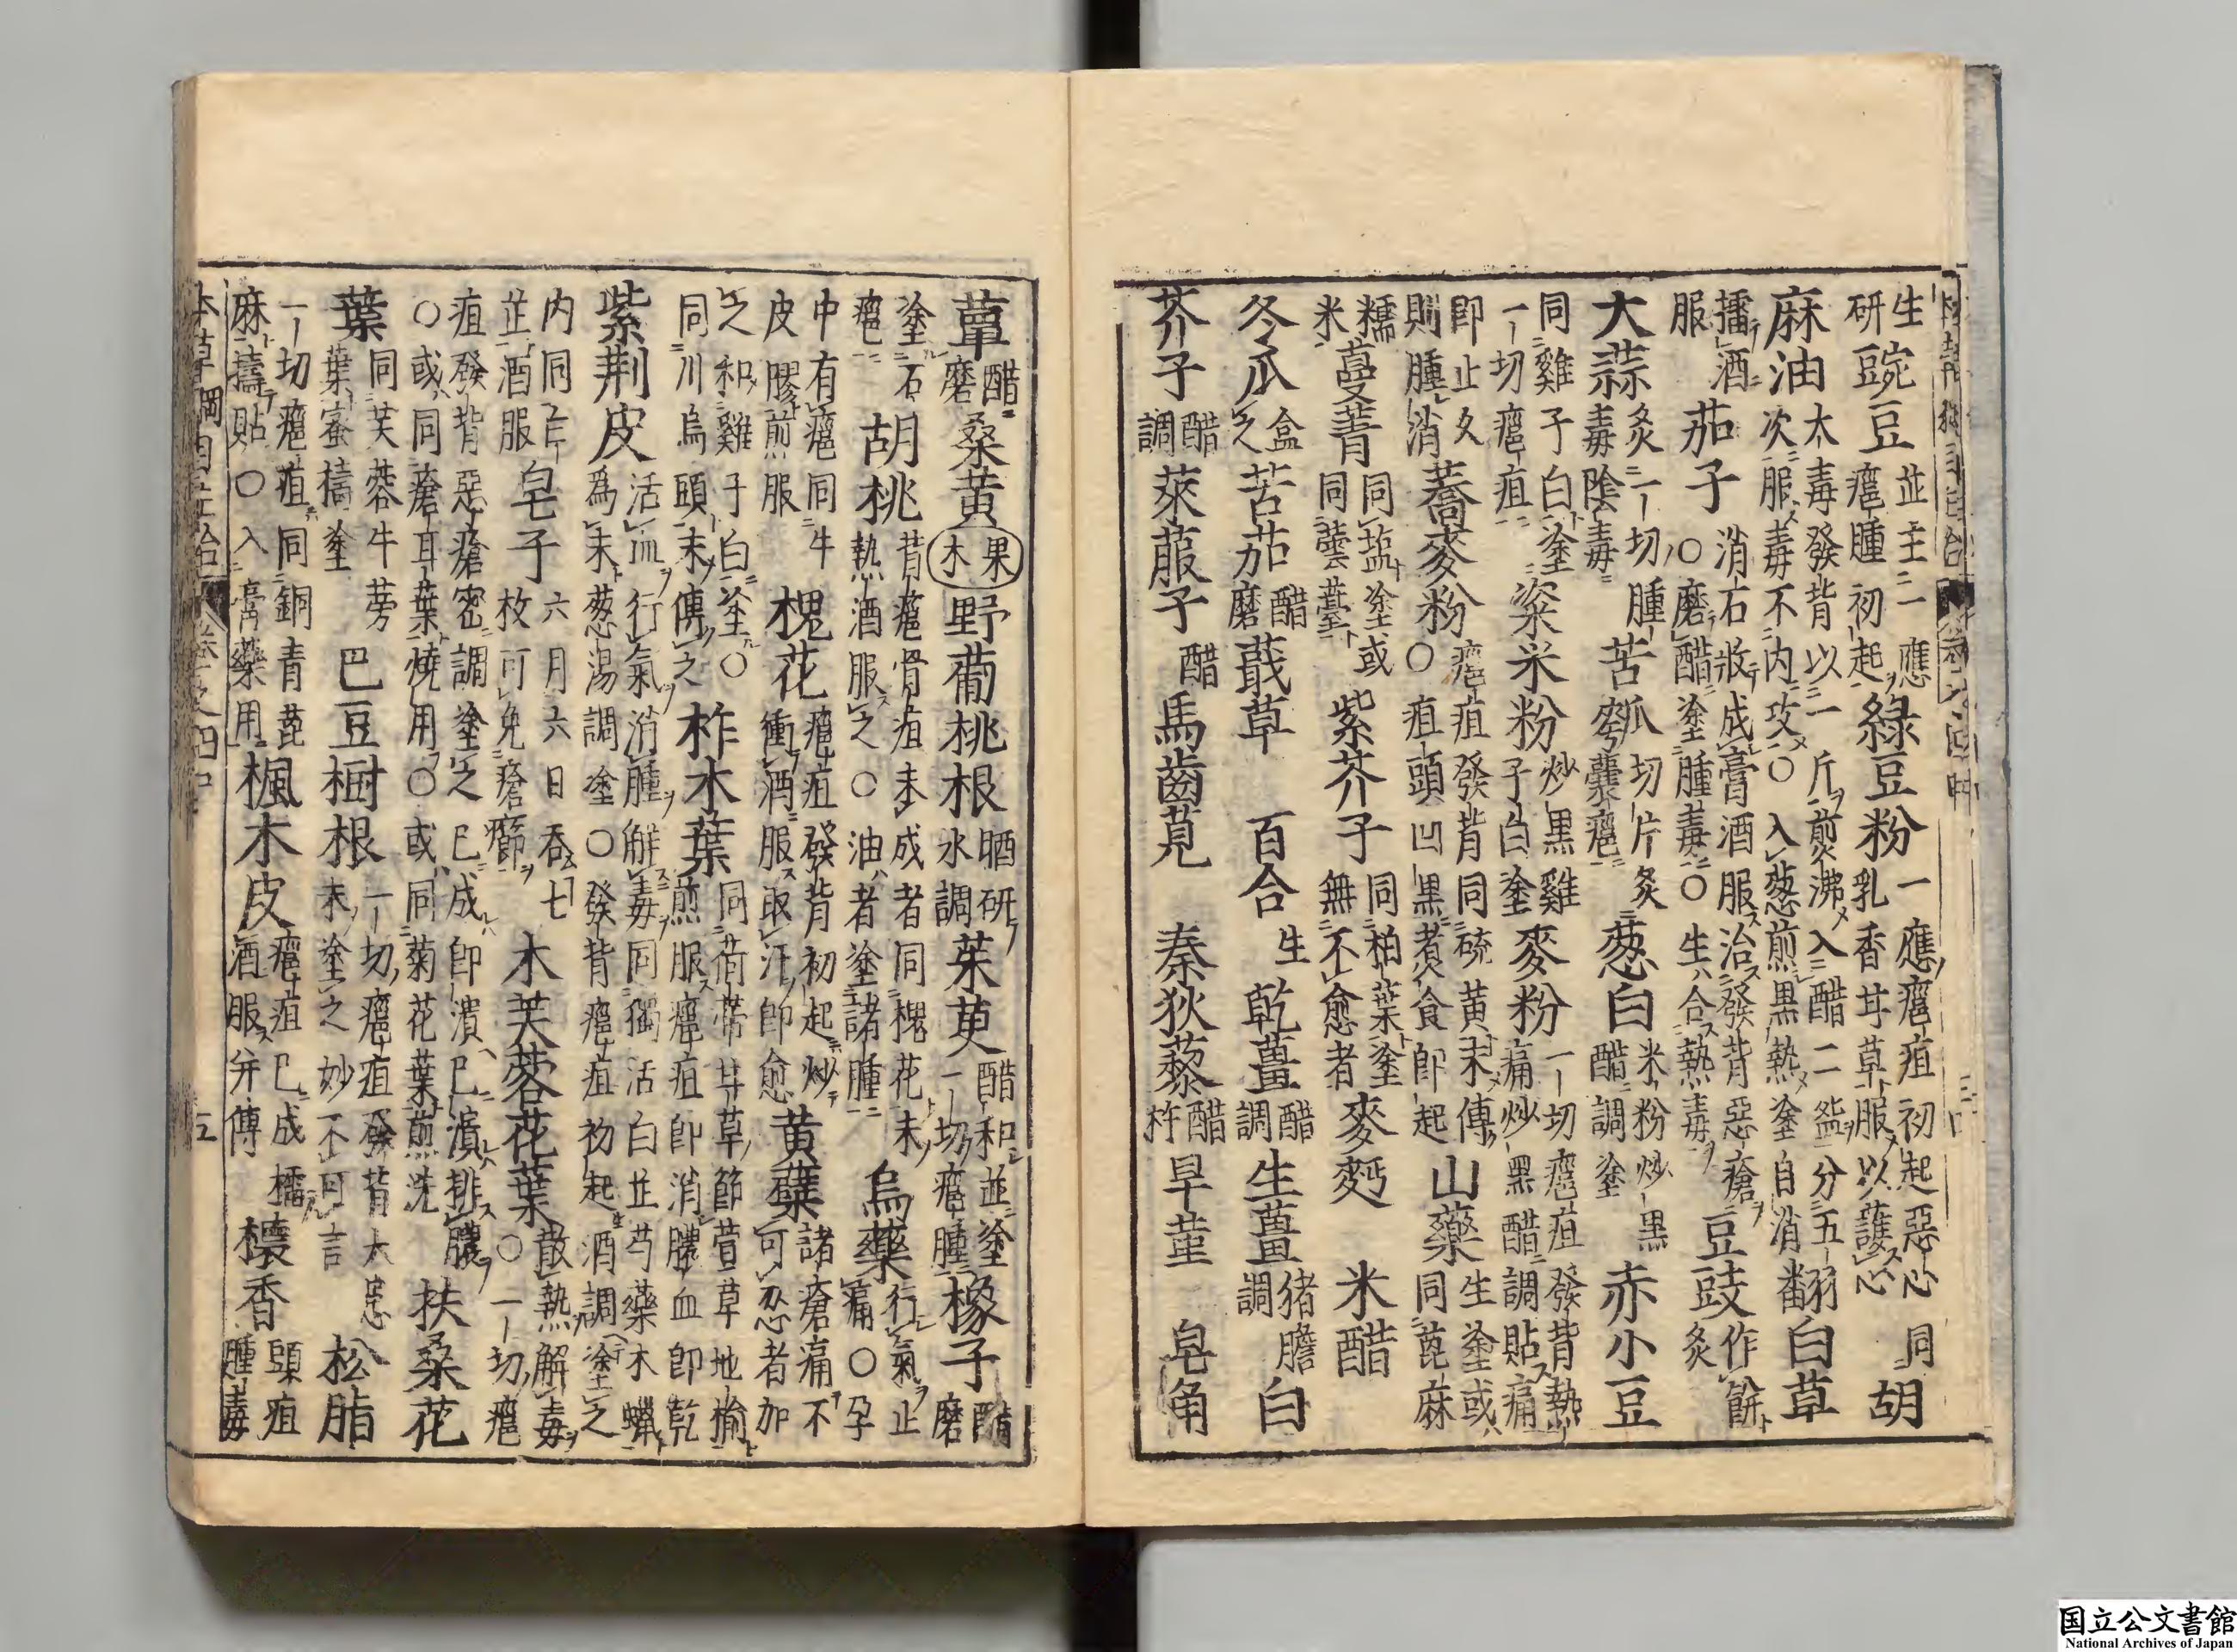 生研豌豆並主一應癰腫初起綠豆粉一應癰疽初起惡心同乳香甘草服以護心胡
麻油太毒發背以一斤煎沸入醋二盌分五次服毒不内攻○入葱煎黑熱塗自消翻白草
擂酒服茄子消石收成膏酒服治發背惡瘡○磨醋塗腫毒○生合熱毒豆豉作餅炙
大蒜炙一切腫毒陰毒苦瓠切片炙囊癰葱白米粉炒黑醋調塗赤小豆
同雞子白塗一切癰疽粱米粉炒黑雞子白塗麥粉一切癰疽發背熱痛炒黑醋調貼痛
即止久則腫消蕎麥粉癰疽發背同硫黃末傅○疽頭凹黑煮食即起山藥生塗或同蓖麻
糯米蔓菁同塩塗或同蕓薹紫芥子同柏葉塗無不愈者麥麪米醋
冬瓜盒之苦茄醋磨蕺草百合生乾薑醋調生薑猪膽調白
芥子醋調萊菔子醋馬齒莧秦狄藜醋杵旱菫皂角
蕈醋磨桑黃果木野葡桃根晒研水調茱萸醋和並塗一切癰腫橡子醋磨
塗石癰胡桃背癰骨疽未成者同槐花末熱酒服之○油者塗諸腫烏藥行氣止痛○孕
中有癰同牛皮膠煎服槐花癰疽發背初起炒衝酒服取汗即愈黃蘗諸瘡痛不可忍者加
之和雞子白塗○同川烏頭末傅之柞木葉同荷蒂甘草節萱草地榆煎服癰疽即消膿血即乾
紫荆皮活血行氣消腫解毒同獨活白芷芍藥木蠟爲末葱湯調塗○發背癰疽初起酒調塗之
内同白芷酒服皂子六月六日吞七枚可免瘡癤木芙蓉花葉散熱解毒○一切癰
疽發背惡瘡蜜調塗之已成即潰已潰排膿○或同蒼耳葉燒用○或同菊花葉煎洗扶桑花
葉同芙蓉牛蒡葉蜜擣塗巴豆樹根一切癰疽發背大患末塗之妙不可言松脂
一切癰疽同銅青蓖麻擣貼○入膏藥用楓木皮癰疽已成擂酒服并傅㯶香頭疽腫毒
本草綱目
国立公文書館
National Archives of Japan